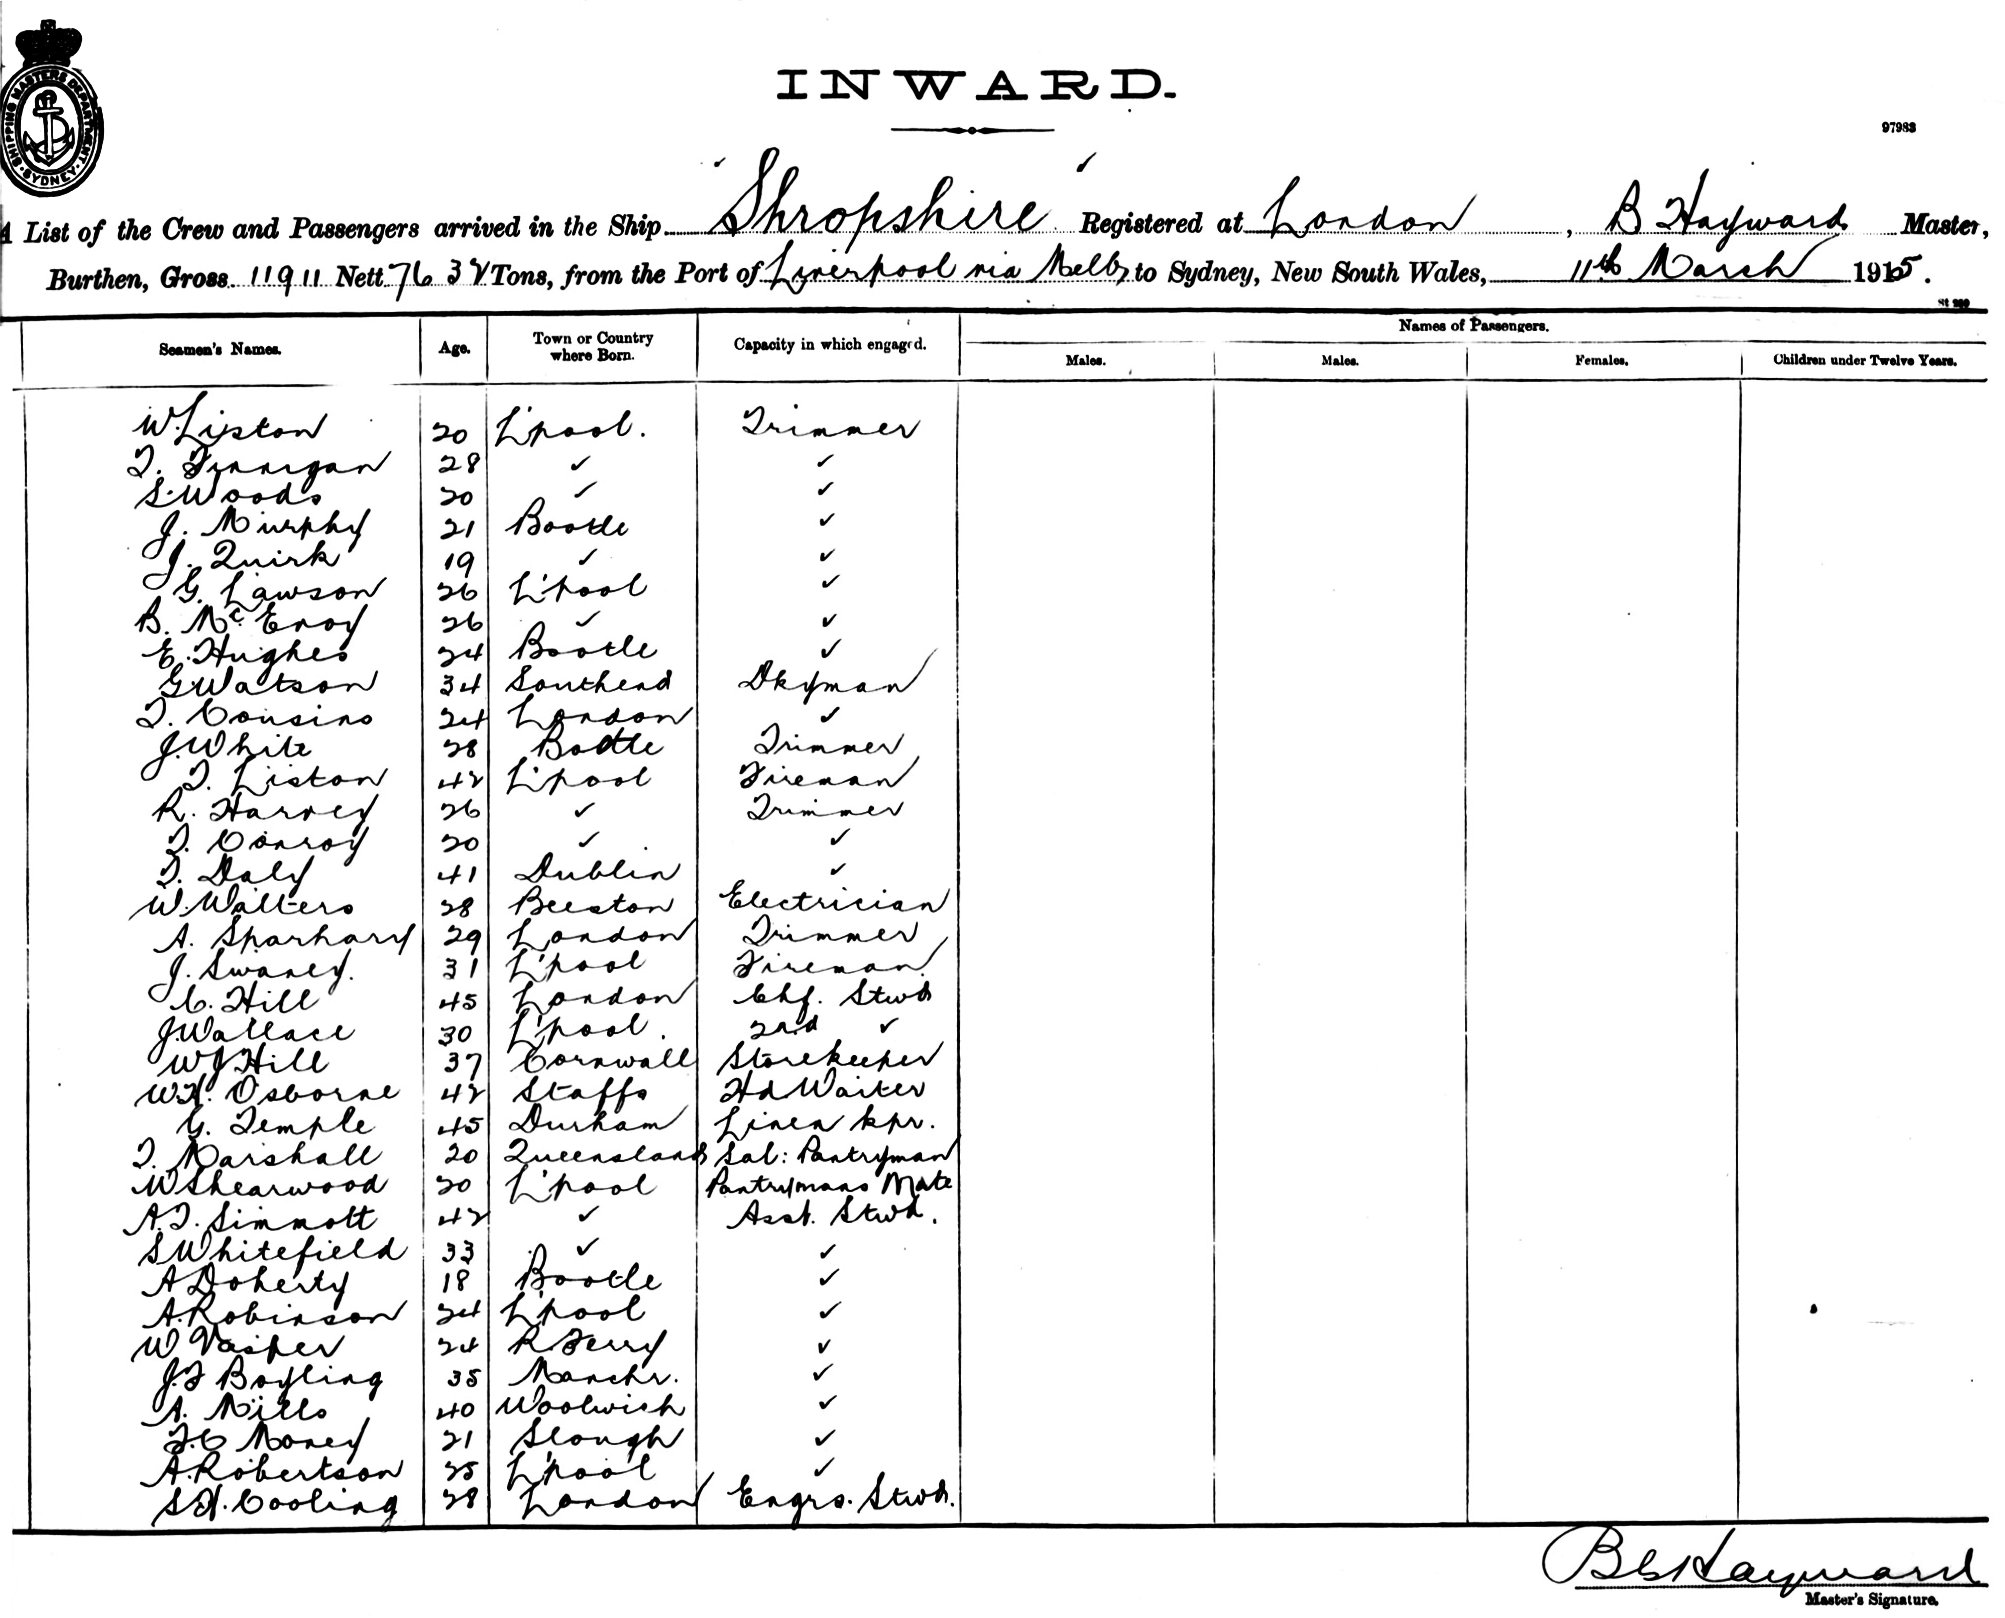 SHIPPING MASTERS DEPARTMENT SYDNEY
INWARD.
97983
A List of the Crew and Passengers arrived in the Ship "Shropshire" Registered at London, B Hayward Master,
Burthen, Gross 11911 Nett 7632 Tons, from the Port of Liverpool via Melb to Sydney, New South Wales, 11th March 1915.
Names of Passengers.
Seamen's Names. Age. Town or Country where Born. Capacity in which engaged. Males. Males. Females. Children under Twelve Years.
W. Liston 20 L'pool. Trimmer
T. Finnigan 28 ✓ ✓
S. Woods 20 ✓ ✓
J. Murphy 21 Bootle ✓
J. Quirk 19 ✓ ✓
G. Lawson 26 L'pool ✓
B. McEnoy 26 ✓ ✓
E. Hughes 24 Bootle ✓
G Watson 34 Southend Dkyman
T. Cousins 24 London ✓
J. White 28 Bootle Trimmer
T. Liston 42 L'pool Fireman
R. Harvey 26 ✓ Trimmer
T. Conroy 20 ✓ ✓
T. Daly 41 Dublin ✓
W. Walters 28 Beeston Electrician
A. Sparhary 29 London Trimmer
J. Swaney. 31 L'pool Fireman.
C. Hill 45 London Chf. Stwd
J. Wallace 30 L'pool. 2nd ✓
W J Hill 37 Cornwall Storekeeper
W. H. Osborne 42 Staffs Hd Waiter
G. Temple 45 Durham Linen kpr.
T. Marshall 20 Queensland Sal: Pantryman
W Shearwood 20 L'pool Pantrymans Mate
A. T. Simmott 42 ✓ Asst. Stwd.
S Whitefield 33 ✓ ✓
A Doherty 18 Bootle ✓
A. Robinson 24 L'pool ✓
W Vasper 24 R Ferry ✓
J. F Boyling 35 Manchr. ✓
A. Mills 40 Woolwich ✓
F. C Money 21 Slough ✓
A. Robertson 25 L'pool ✓
S H. Cooling 28 London Engrs. Stwd.
B C Hayward
Master's Signature.